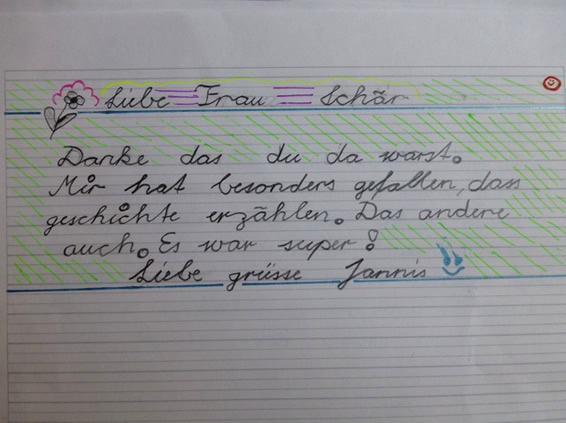 Liebe Frau Schär
Danke das du da warst.
Mir hat besonders gefallen, dass
geschichte erzählen. Das andere
auch. Es war super!
Liebe grüsse Jannis